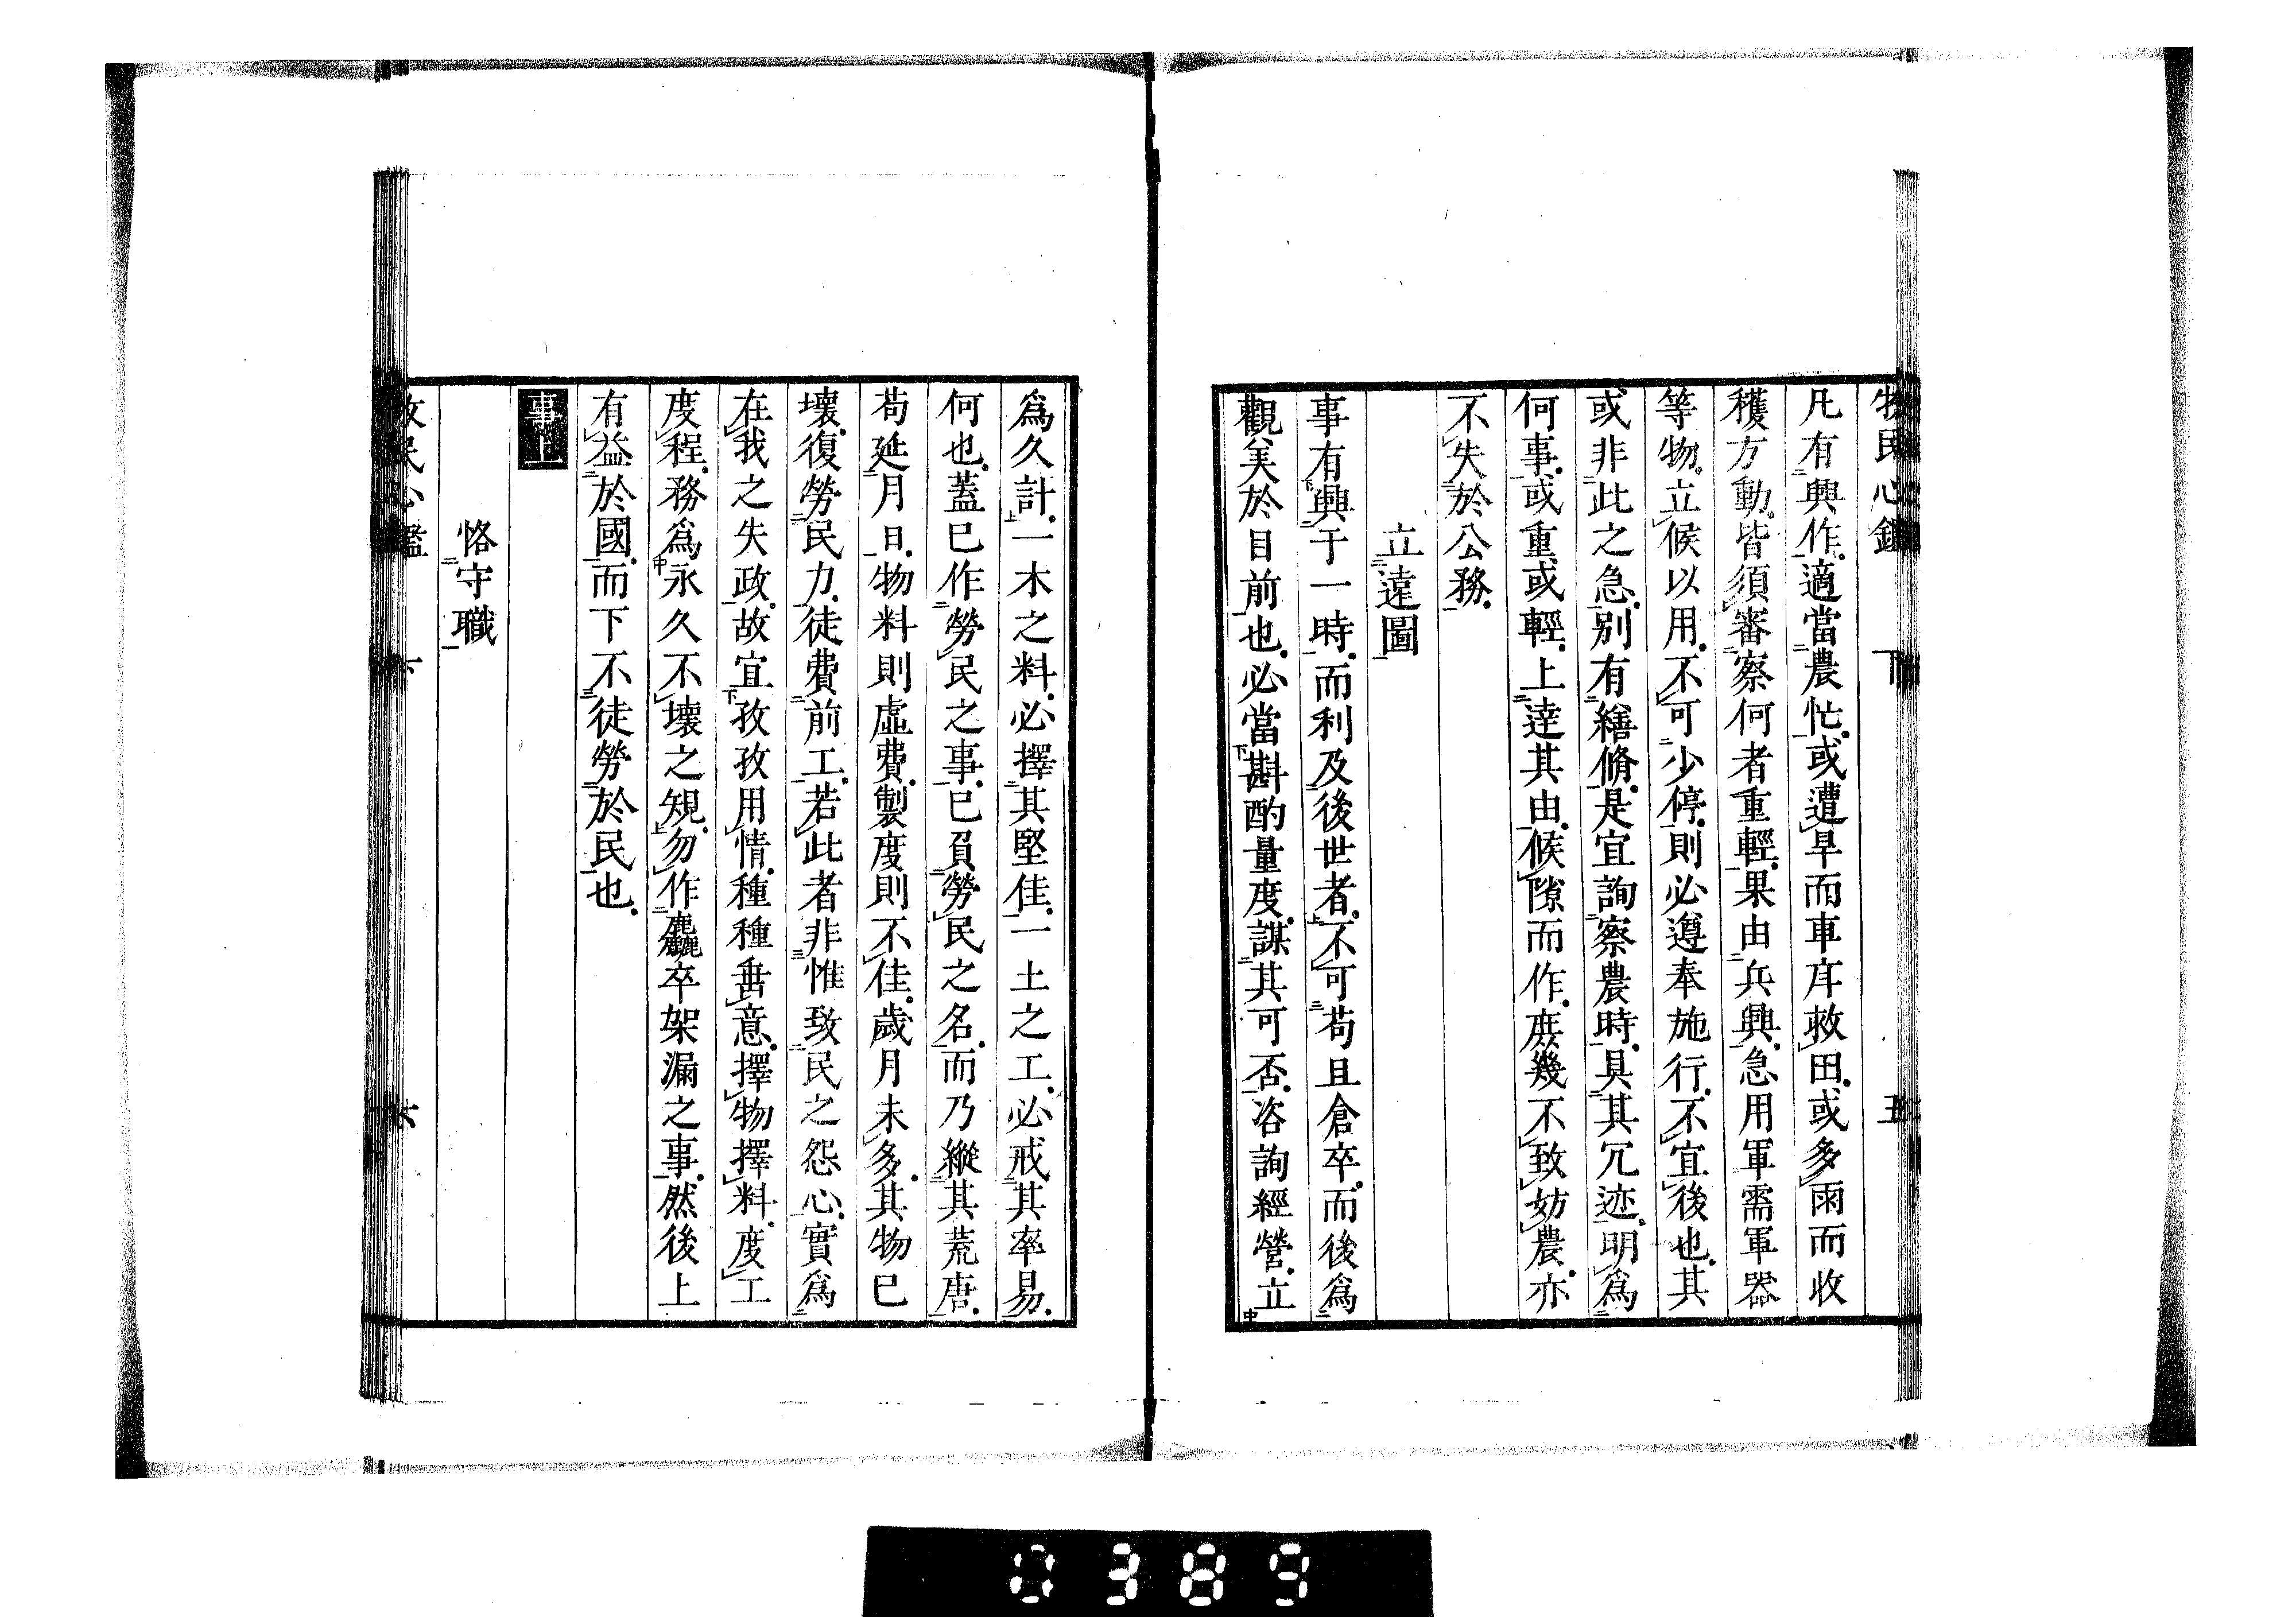 牧民心鑑 下 五
凡有興作適當農忙或遭旱而車戽救田或多雨而收
穫方動皆須審察何者重輕果由兵興急用軍需軍器
等物立候以用不可少停則必遵奉施行不宜後也其
或非此之急別有繕脩是宜詢察農時具其冗迹明爲
何事或重或輕上達其由候隙而作庶幾不致妨農亦
不失於公務
立遠圖
事有興于一時而利及後世者不可苟且倉卒而後爲
觀美於目前也必當斟酌量度謀其可否咨詢經營立
爲久計一木之料必擇其堅佳一土之工必戒其率易
何也蓋已作勞民之事已負勞民之名而乃縱其荒唐
苟延月日物料則虛費製度則不佳歲月未多其物已
壞復勞民力徒費前工若此者非惟致民之怨心實爲
在我之失政故宜孜孜用情種種垂意擇物擇料度工
度程務爲永久不壞之規勿作麤卒架漏之事然後上
有益於國而下不徒勞於民也
事上
恪守職
牧民心鑑 下 六
0389